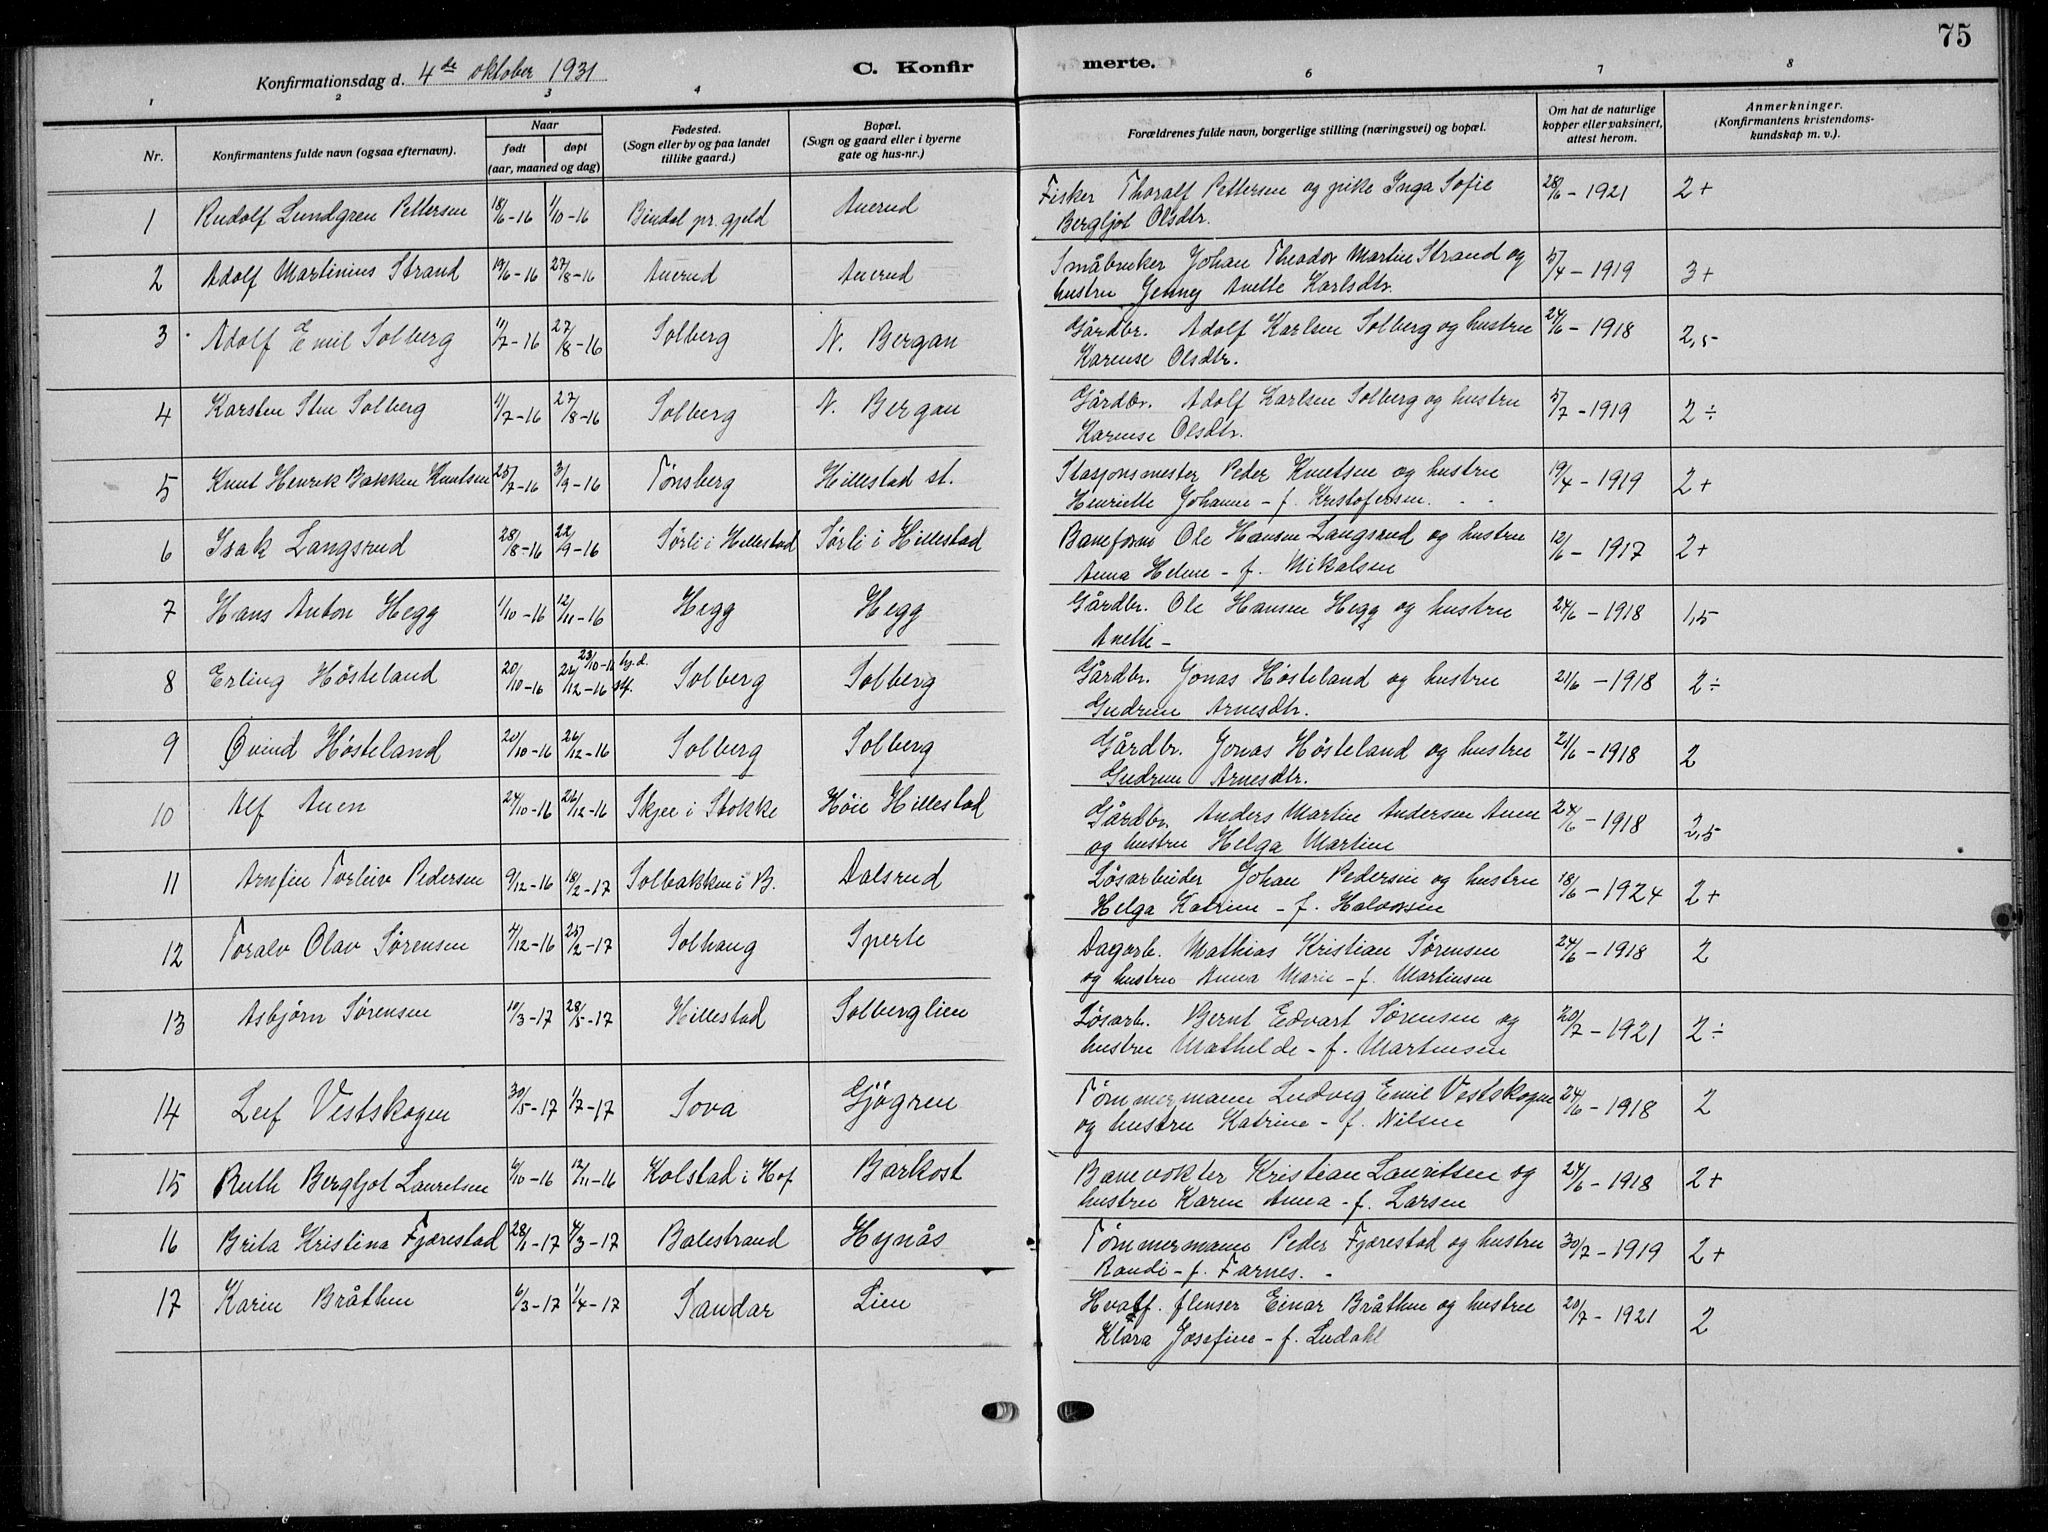 75
Konfirmationsdag d. 4de oktober 1931 C. Konfirmerte.
1 2 3 4 5 6 7 8
Nr. | Konfirmantens fulde navn (ogsaa efternavn). | Naar født | døpt (aar, maaned og dag) | Fødested. (Sogn eller by og paa landet tillike gaard.) | Bopæl. (Sogn og gaard eller i byerne gate og hus-nr.) | Forældrenes fulde navn, borgerlige stilling (næringsvei) og bopæl. | Om hat de naturlige kopper eller vaksinert, attest herom. | Anmerkninger. (Konfirmantens kristendomskundskap m. v.).
1 Rudolf Lundgren Pettersen 18/6-16 1/10-16 Bindal pr.gjeld Auerud Fisker Thoralf Pettersen og pike Inga Sofie 28/6-1921 2+
Bergljot Olsdtr.
2 Adolf Martinius Strand 19/6-16 27/8-16 Auerud Auerud Småbruker Johan Theodor Martin Strand og 5/4-1919 3+
hustru Jenny Anette Karlsdtr.
3 Adolf Emil Solberg 11/7-16 27/8-16 Solberg N. Bergan Gårdbr. Adolf Karlsen Solberg og hustru 24/6-1918 2,5
Karense Olsdtr.
4 Karsten Sten Solberg 11/7-16 27/8-16 Solberg N. Bergan Gårdbr. Adolf Karlsen Solberg og hustru 5/7-1919 2÷
Karense Olsdtr.
5 Knut Henrik Bakken Knutsen 25/7-16 3/9-16 Tønsberg Hillestad st. Stasjonsmester Peder Knutsen og hustru 19/4-1919 2+
Henriette Johanne - f. Kristofersen.
6 Isak Langsrud 28/8-16 22/9-16 Sørli i Hillestad Sørli i Hillestad Baneform Ole Hansen Langsrud og hustru 12/6-1917 2+
Anna Helene - f. Mikalsen
7 Hans Anton Hegg 1/10-16 12/11-16 Hegg Hegg Gårdbr. Ole Hansen Hegg og hustru 24/6-1918 1,5
Anette -
8 Erling Høsteland 20/10-16 23/10-16 hj.d. 26/12-16 stf. Solberg Solberg Gårdbr. Jonas Høsteland og hustru 21/6-1918 2÷
Gudrun Arnesdtr.
9 Øvind Høsteland 20/10-16 26/12-16 Solberg Solberg Gårdbr. Jonas Høsteland og hustru 21/6-1918 2
Gudrun Arnesdtr.
10 Alf Auen 24/10-16 26/12-16 Skjee i Stokke Høie Hillestad Gårdbr. Anders Martin Andersen Auen 24/6-1918 2,5
og hustru Helga Martine
11 Arnfin Torleiv Pedersen 9/12-16 18/2-17 Solbakken i B. Dalsrud Løsarbeider Johan Pedersen og hustru 18/6-1924 2+
Helga Katrine - f. Halvorsen
12 Toralv Olav Sørensen 4/12-16 25/2-17 Solhaug Sperte Dagarb. Mathias Kristian Sørensen 24/6-1918 2
og hustru Anna Marie - f. Martinsen
13 Asbjørn Sørensen 10/3-17 28/5-17 Hillestad Solberglien Løsarb. Bernt Edvart Sørensen og 20/7-1921 2÷
hustru Mathilde - f. Martinsen
14 Leif Vestskogen 30/5-17 1/7-17 Sova Gjøgren Tømmermann Ludvig Emil Vestskogen 24/6-1918 2
og hustru Katrine - f. Nilsen
15 Ruth Bergljot Lauritsen 6/10-16 12/11-16 Kolstad i Hof Barkost Banevokter Kristian Lauritsen og 24/6-1918 2+
hustru Karen Anna - f. Larsen
16 Brita Kristina Fjærestad 28/1-17 4/3-17 Balestrand Hynås Tømmermann Peder Fjærestad og hustru 30/7-1919 2+
Randi - f. Farnes.
17 Karin Bråthen 6/3-17 1/4-17 Sandar Lien Hvalf. flenser Einar Bråthen og hustru 20/7-1921 2
Klara Josefine - f. Ludahl